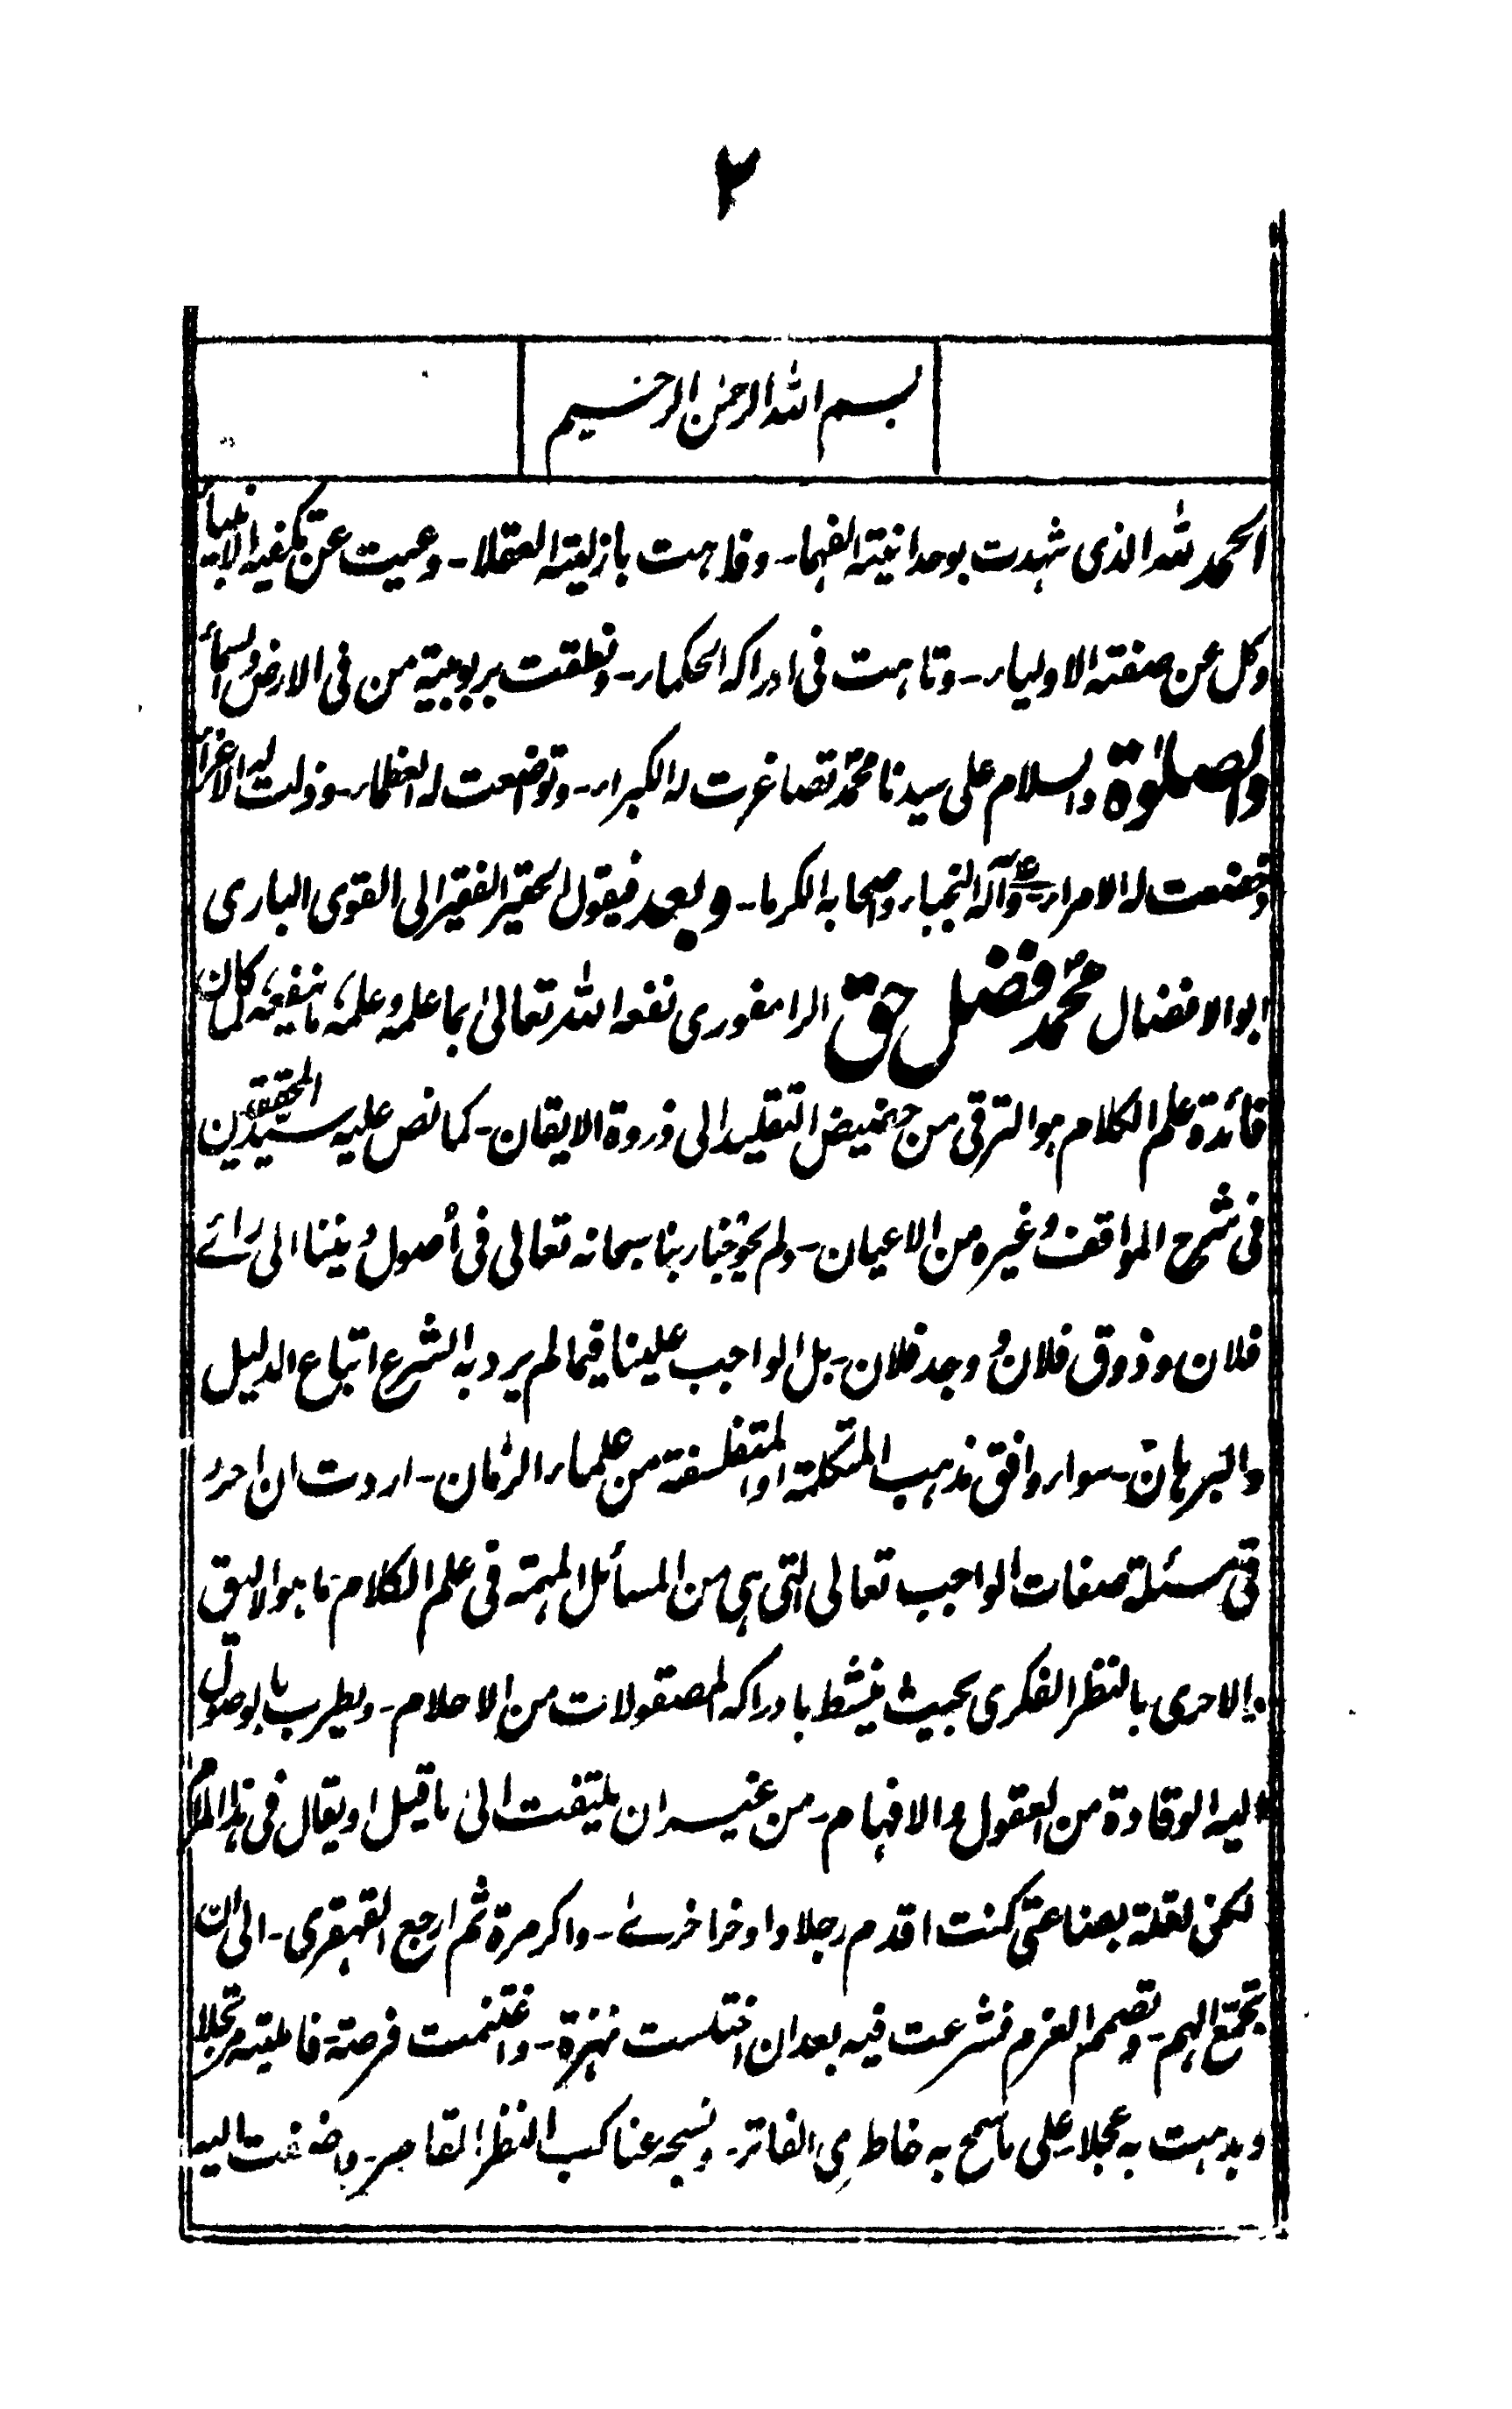 ٢
بسم الله الرحمن الرحيم
الحمد لله الذى شهدت بوحدانيته الفهماء۔ وفاهت بازليته العقلاء۔ وعيت عن تكييفه الانبياء
وكل عن صفته الاولياء۔ وتاهت فى ادراكه الحكماء۔ ونطقت بربوبيته من فى الارض والسماء
والصلوة والسلام على سيدنا محمد تصاغرت له الكبراء۔ وتواضعت له العظماء۔ وذلت له الاعزاء
وخضعت له الامراء۔ وعلى آله النجباء وصحابه الكرما۔ وبعد فيقول الحقير الفقير الى القوى البارى
ابو الافضال محمد فضل حق الرامفورى نفعه الله تعالى بما علمه وعلمه ما ينفعه لما كان
فائدة علم الكلام هو الترقى من حضيض التقليد الى ذروة الايقان۔ كما نص عليه سيد المحققين
فى شرح المواقف وغيره من الاعيان۔ ولم يحوجنا ربنا سبحانه تعالى فى أصول ديننا الى رائے
فلان وذوق فلان ووجد فلان۔ بل الواجب علينا فيما لم يرد به الشرع اتباع الدليل
والبرهان۔ سواء وافق مذهب المتكلمة او المتفلسفة من علماء الزمان۔ اردت ان احرر
فى مسئلة صفات الواجب تعالى التى هى من المسائل المهمة فى علم الكلام ما هو الاليق
والاحرى بالنظر الفكرى بحيث ينشط بادراكه المصقولات من الاحلام۔ ويطرب بالوصول
اليه الوقادة من العقول والافهام۔ من غير ان يلتفت الى ما قيل او يقال فى هذا المرام
لكن لقلة بضاعتى كنت اقدم رجلا واوخر اخرے۔ واكر مرة ثم ارجع القهقرى۔ الى ان
تجمع الهم۔ وتصمم العزم فشرعت فيه بعد ان اختلست نهزة۔ واغتنمت فرصة۔ فامليته مرتجلا
وبدهت به عجلا۔ على ما سمح به خاطرى الفاتر۔ ونسجه عناكب النظر القاصر۔ واضفت اليه